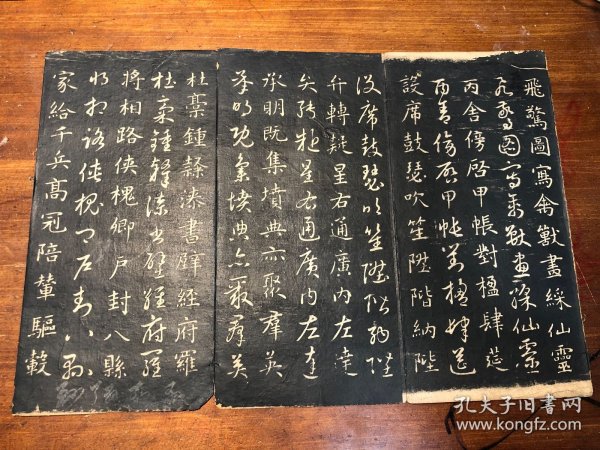 飛驚圖寫禽獸畫綵仙靈
飛驚圖寫禽獸畫綵仙靈
丙舍傍啓甲帳對楹肆莚
丙舍傍啓甲帳對楹肆莚
設席鼓瑟吹笙陞階納陛
設席鼓瑟吹笙陞階納陛
弁轉疑星右通廣內左達
弁轉疑星右通廣內左達
承明既集墳典亦聚羣英
承明既集墳典亦聚羣英
杜稾鍾隸漆書壁經府羅
杜稾鍾隸漆書壁經府羅
將相路俠槐卿戶封八縣
將相路俠槐卿戶封八縣
家給千兵高冠陪輦驅轂
孔夫子旧書网
www.kongfz.com